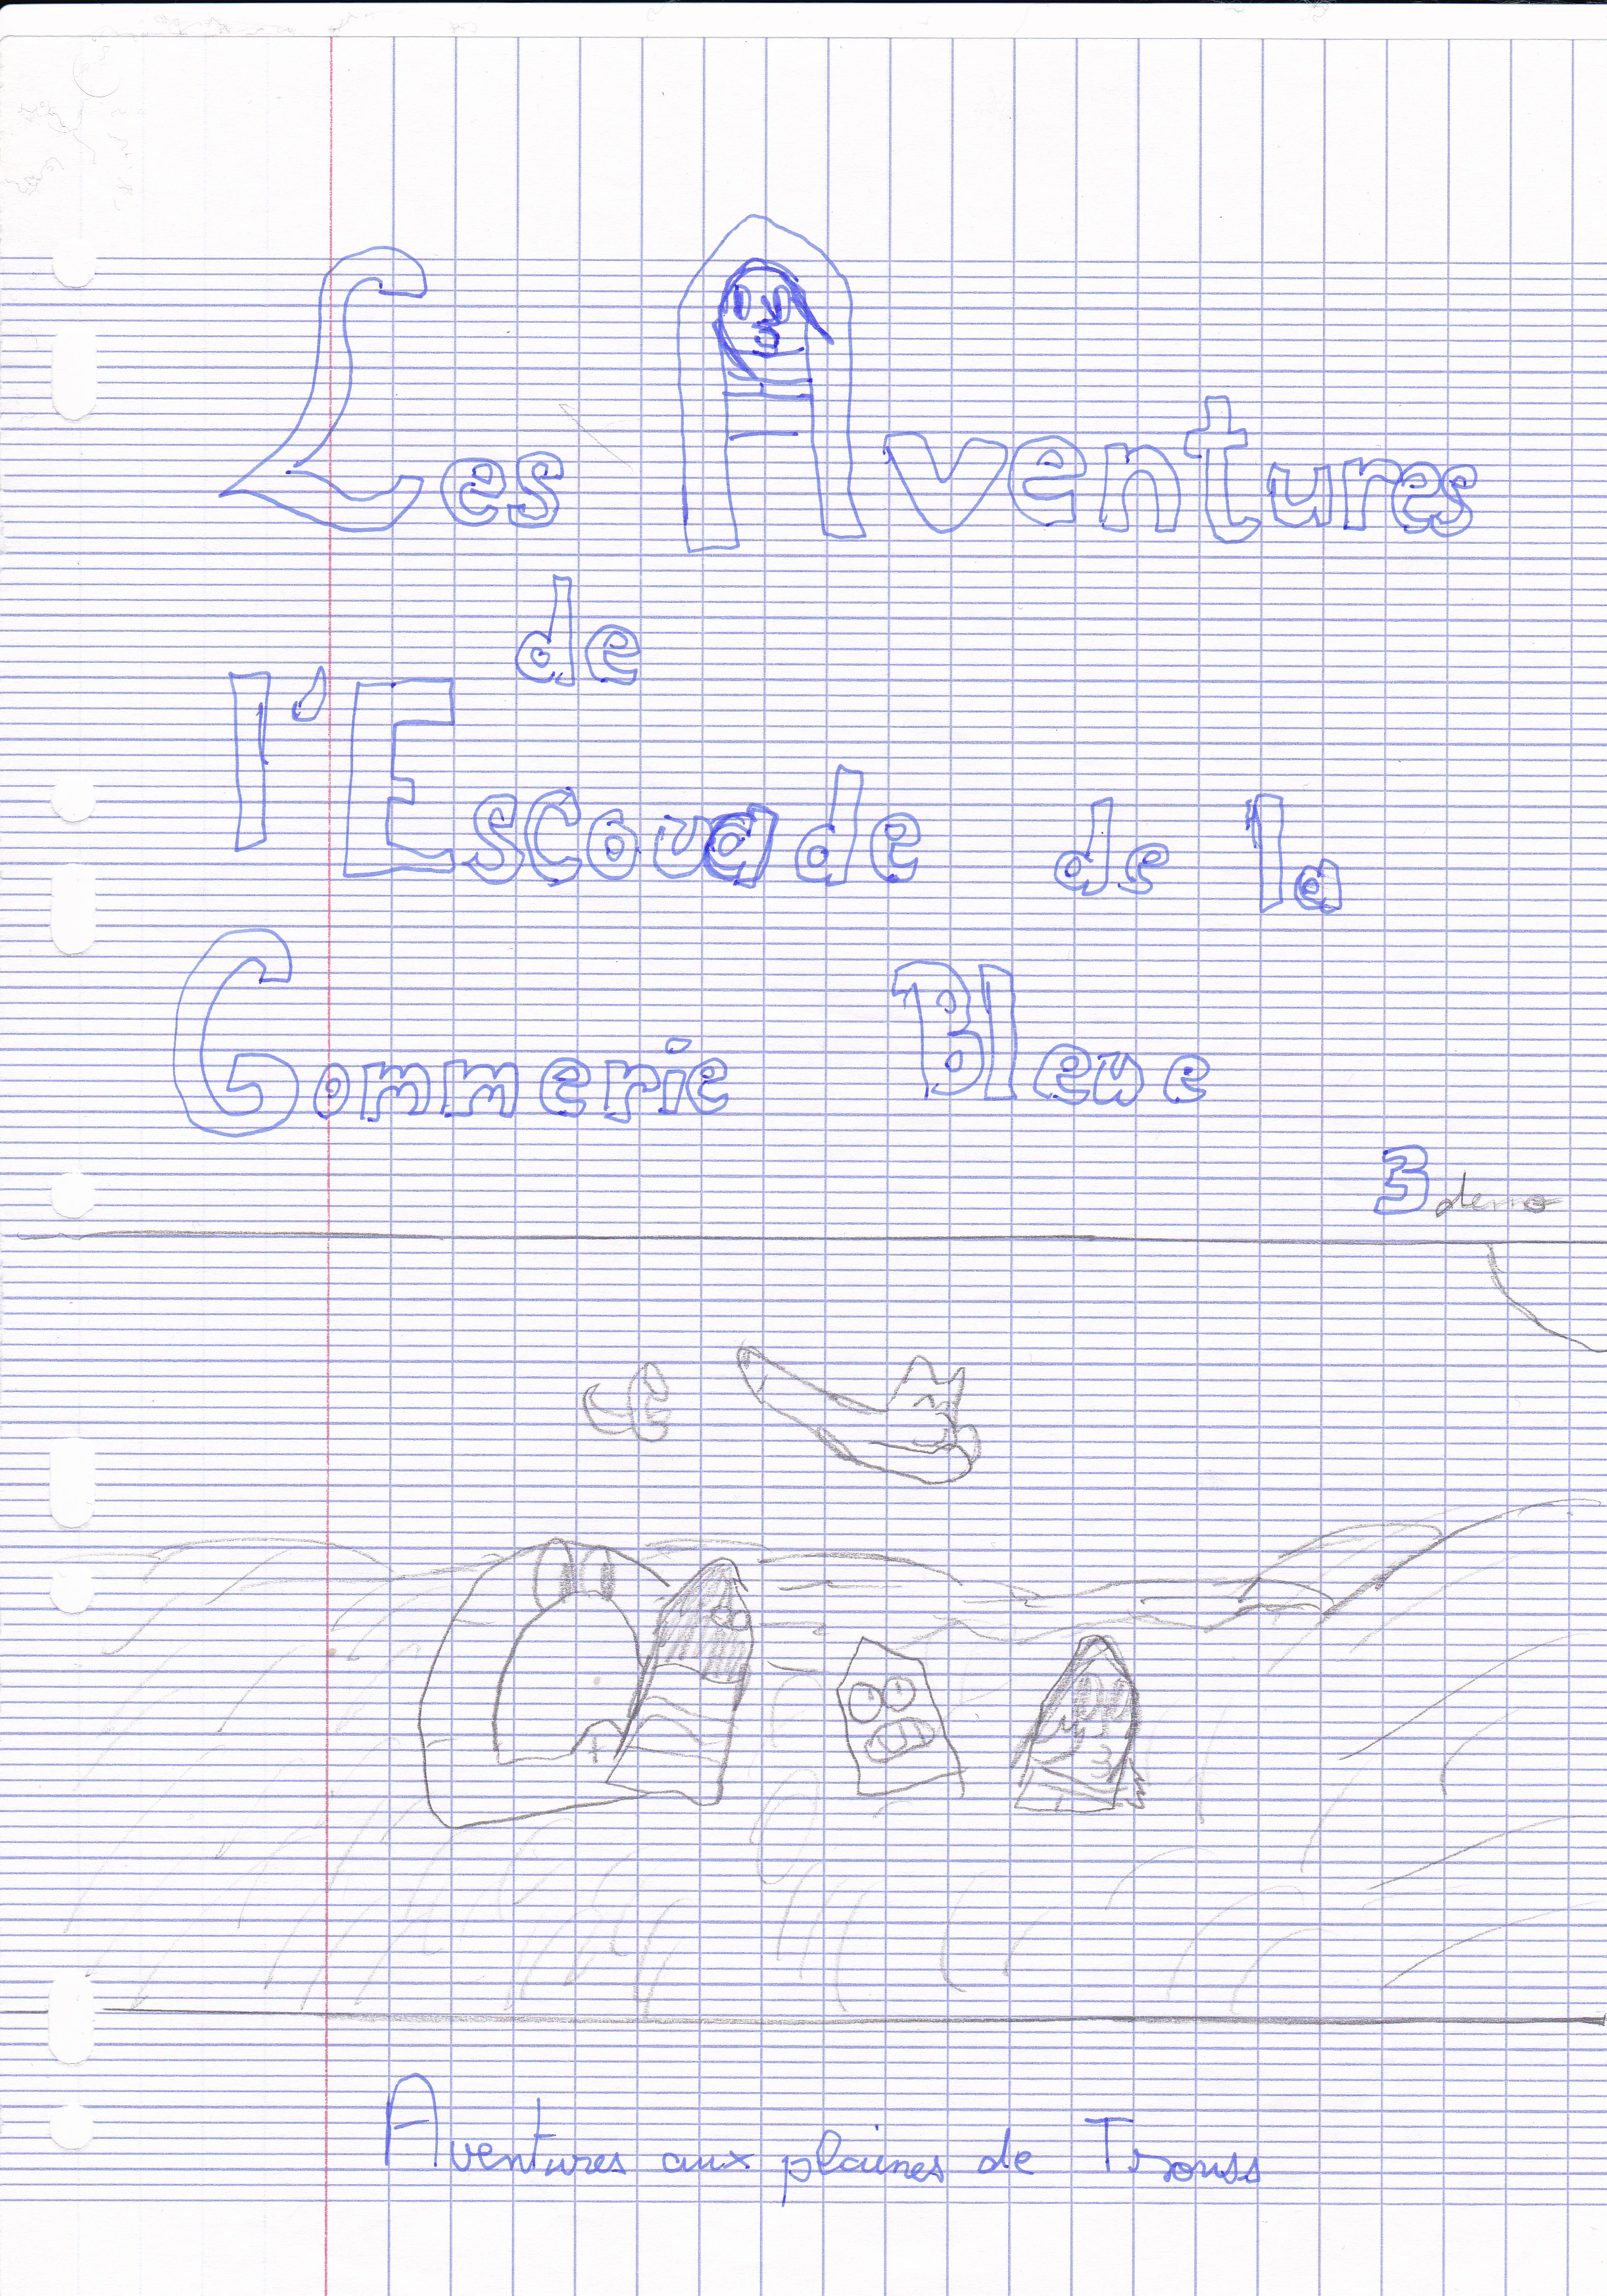 Les Aventures
de
l'Escouade de la
Gommerie Bleue
3 demo
Aventures aux plaines de Trouss